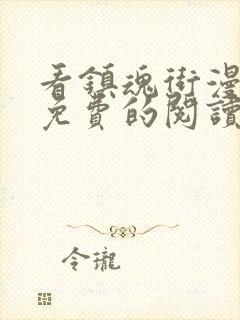 看鎮魂街漫
免費的閱讀
令瓏